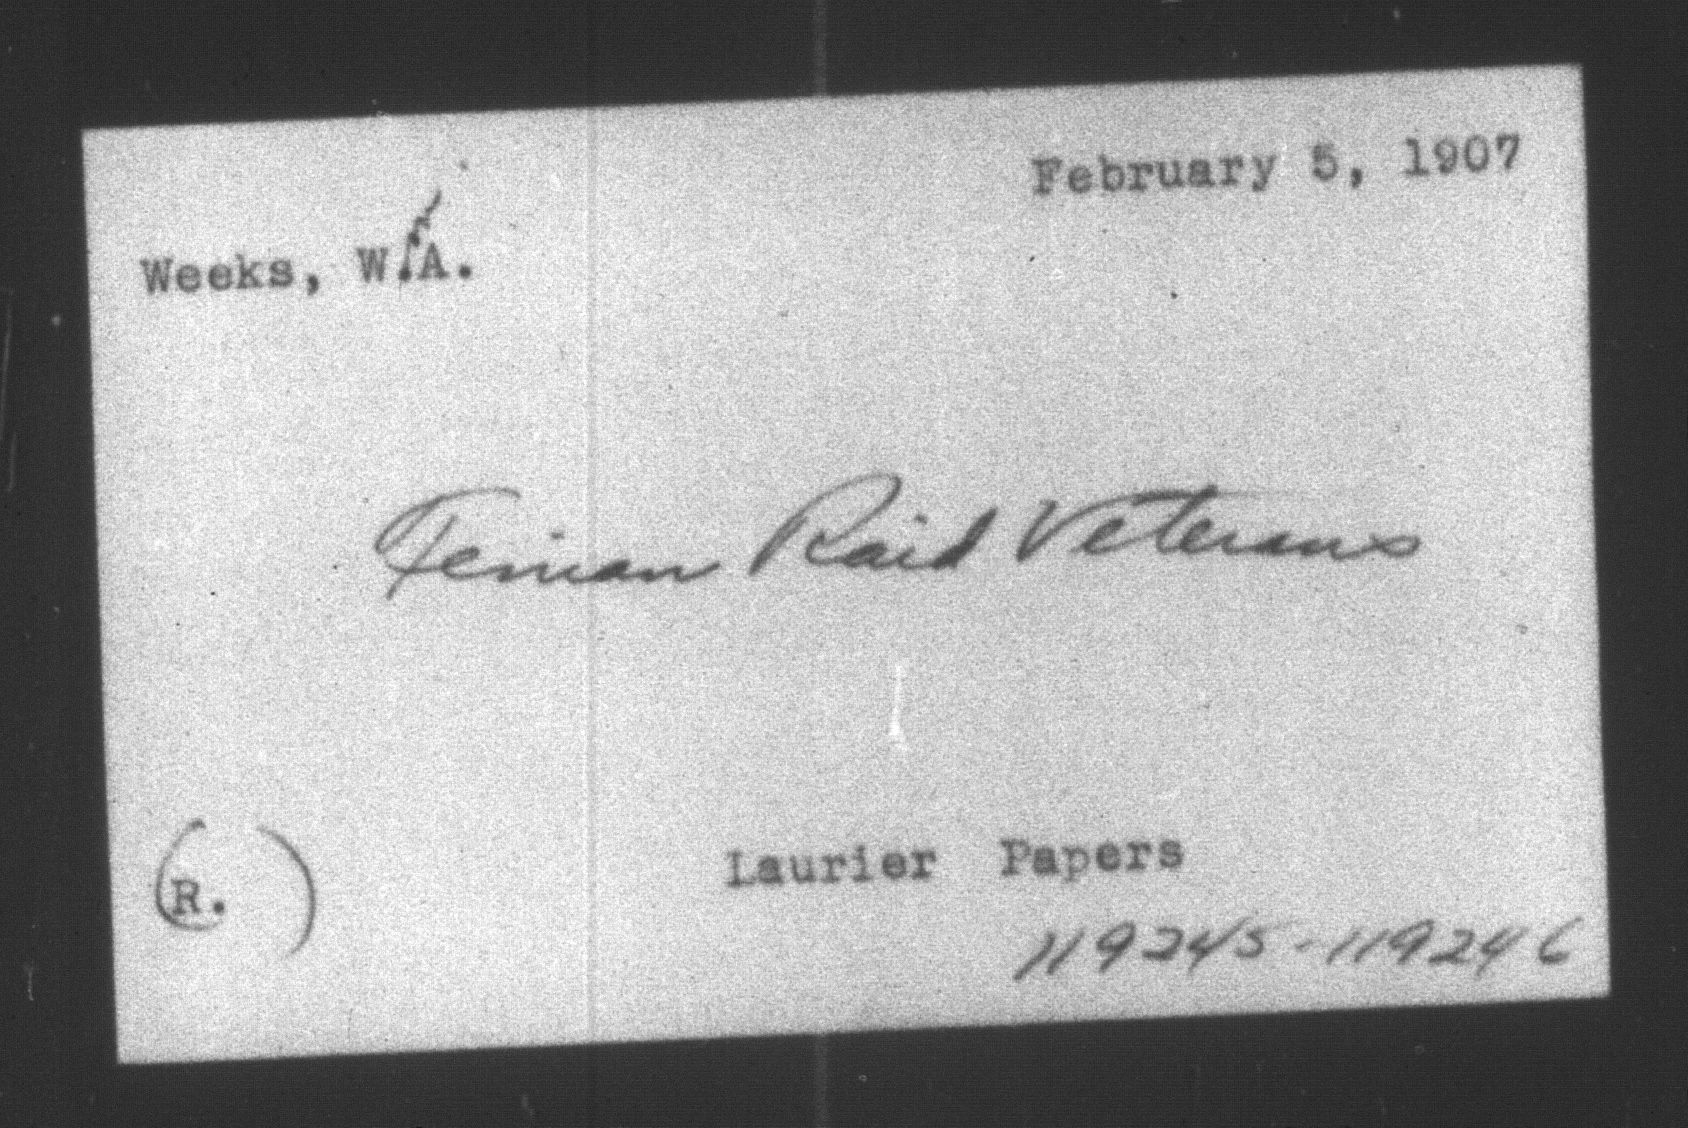 February 5, 1907
Weeks, W.A.
Fenian Raid Veterans
(R. )
Laurier Papers
119245-119246